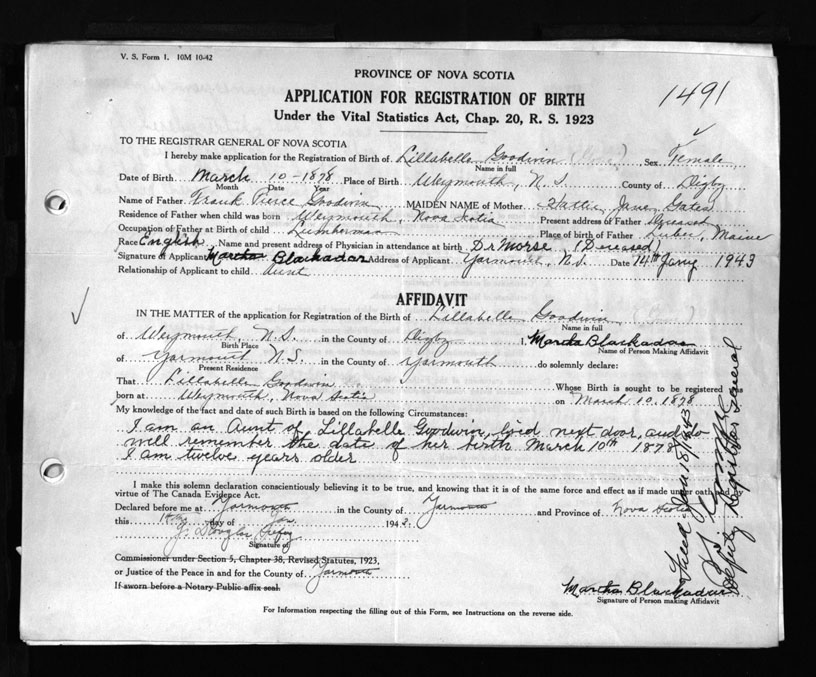 V. S. Form 1. 10M 10-42
PROVINCE OF NOVA SCOTIA
1491
APPLICATION FOR REGISTRATION OF BIRTH
Under the Vital Statistics Act, Chap. 20, R. S. 1923
TO THE REGISTRAR GENERAL OF NOVA SCOTIA
I hereby make application for the Registration of Birth of Lillabelle Goodwin Sex Female
Name in full
Date of Birth March 10-1878 Place of Birth Weymouth, N. S. County of Digby
Month Date Year
Name of Father Frank Pierce Goodwin MAIDEN NAME of Mother Hattie Jane Gates
Residence of Father when child was born Weymouth, Nova Scotia Present address of Father Deceased
Occupation of Father at Birth of Child Lumberman Place of birth of Father Lubec, Maine
Race English, Name and present address of Physician in attendance at birth Dr Morse, (Deceased)
Signature of Applicant Martha Blackadar Address of Applicant Yarmouth, N.S. Date 14th Jany 1943
Relationship of Applicant to child Aunt
AFFIDAVIT
IN THE MATTER of the application for Registration of the Birth of Lillabelle Goodwin
Name in full
of Weymouth, N.S. in the County of Digby I, Martha Blackadar
Birth Place Name of Person Making Affidavit
of Yarmouth N.S. in the County of Yarmouth do solemnly declare:
Present Residence
That Lillabelle Goodwin Whose Birth is sought to be registered was
born at Weymouth, Nova Scotia on March 10, 1878
My knowledge of the fact and date of such Birth is based on the following Circumstances:
I am an Aunt of Lillabelle Goodwin, lived next door, and do
well remember the date of her birth March 10th 1878
I am twelve years older.
I make this solemn declaration conscientiously believing it to be true, and knowing that it is of the same force and effect as if made under oath and by
virtue of The Canada Evidence Act.
Declared before me at Yarmouth in the County of Yarmouth and Province of Nova Scotia
this day of Jan 194
J. Douglas
Signature of
Commissioner under Section 5, Chapter 38, Revised Statutes, 1923,
or Justice of the Peace in and for the County of Yarmouth
If sworn before a Notary Public affix seal.
Martha Blackadar
Signature of Person making Affidavit
For Information respecting the filling out of this Form, see Instructions on the reverse side.
Filed Jan 18/1943
Deputy Registrar General